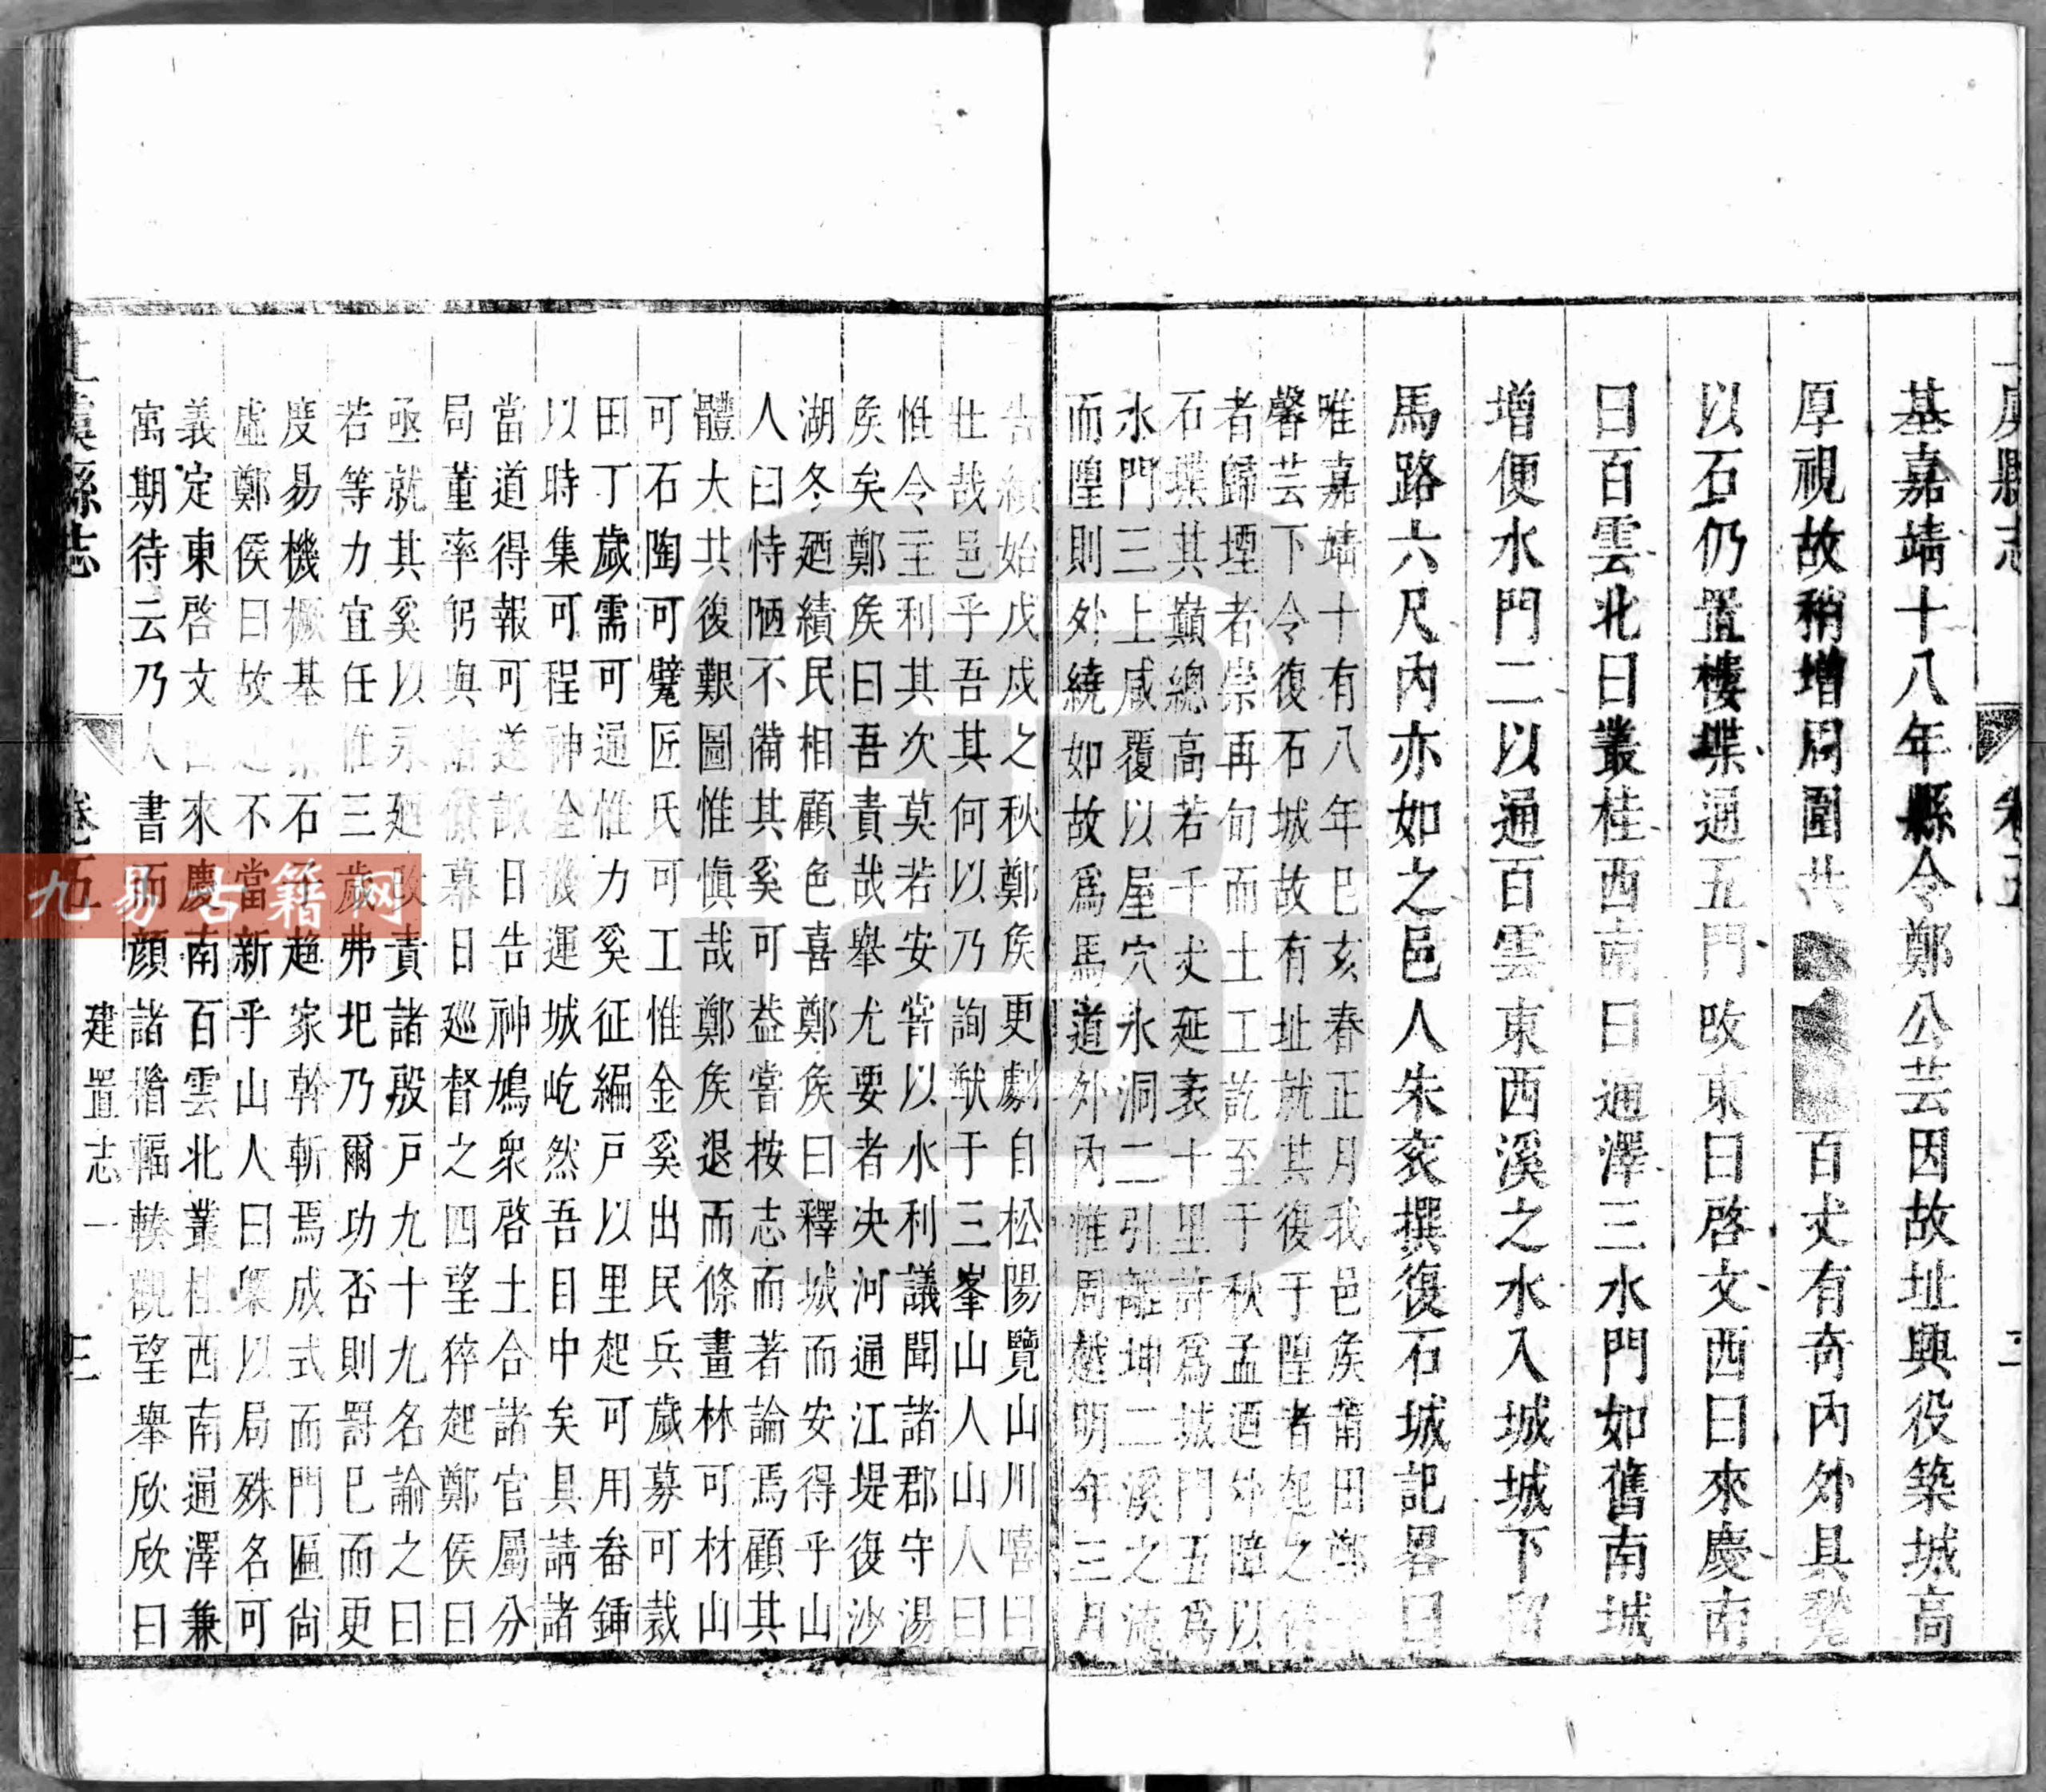 虞縣志
基嘉靖十八年縣令鄭公芸因故址興役築城高
厚視故稍增周圍共百丈有奇內外具甃
以石仍置樓堞通五門改東曰啓文西曰來慶南
曰百雲北曰叢桂西南曰通澤三水門如舊南城
增便水門二以通百雲東西溪之水入城城下留
馬路六尺內亦如之邑人朱袞撰復石城記畧曰
唯嘉靖十有八年巳亥春正月我邑矦莆田鄭
馨芸下令復石城故有址就其復于隍者起之
者歸堙者崇再旬而土工訖至于秋孟迺外障以
石堞其巔總高若干丈延袤十里許爲城門五爲
水門三上咸覆以屋穴水洞二引離坤二溪之流
而隍則外繞如故爲馬道外內惟周越明年三月
告績始戊戌之秋鄭矦更劇自松陽覽山川嘻曰
壯哉邑乎吾其何以乃詢猷于三峯山人山人曰
惟令主利其次莫若安嘗以水利議聞諸郡守湯
矦矣鄭矦曰吾責哉舉尤要者决河通江堤復沙
湖冬廼績民相顧色喜鄭矦曰釋城而安得乎山
人曰恃陋不備其奚可葢嘗按志而著論焉顧其
體大其復艱圖惟慎哉鄭矦退而條畫林可材山
可石陶可甓匠氏可工惟金奚出民兵歲募可裁
田丁歲需可通惟力奚征編戶以里起可用畚鍤
以時集可程神全機運城屹然吾目中矣具請諸
當道得報可遂諏日告神鳩衆啓土合諸官屬分
局董率躬與諸僚幕日廵督之四望猝起鄭侯曰
亟就其奚以永廼改責諸殷戶九十九名論之曰
若等力宜任惟三歲弗圯乃爾功否則罸巳而更
度易機撅基石趨家幹斬焉成式而門匾尙
虛鄭侯曰故不當新乎山人曰槩以局殊名可
義定東啓文西來慶南百雲北叢桂西南通澤兼
寓期待云乃人書而顔諸楷輻輳觀望舉欣欣曰
上虞縣志
卷五
建置志一
三
九易古籍网